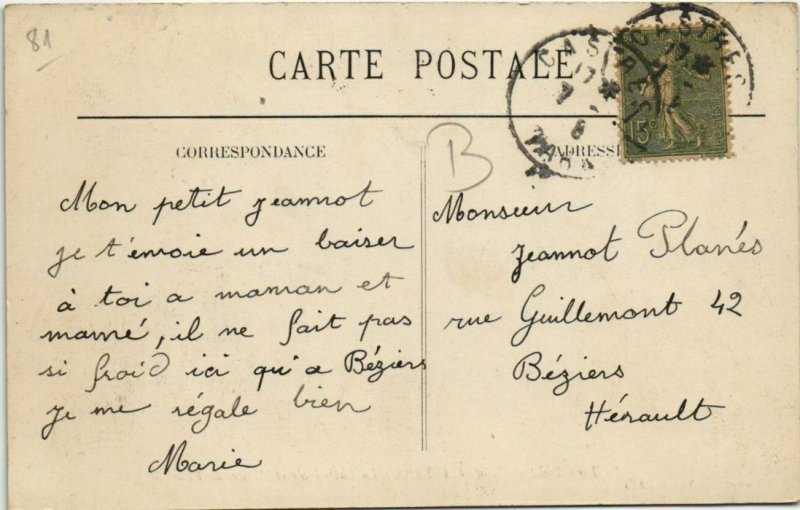 81
CARTE POSTALE
CORRESPONDANCE
B
Mon petit Jeannot
je t'envoie un baiser
à toi a maman et
mamé, il ne fait pas
si froid ici qu'a Béziers
je me régale bien
Marie
Monsieur
Jeannot Planés
rue Guillemont 42
Béziers
Hérault
CASTRES
TARN
15c